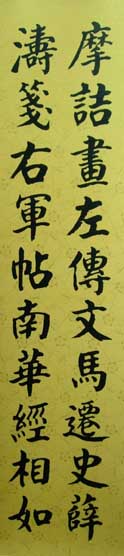 摩詰畫左傳文馬遷史薛
濤箋右軍帖南華經相如